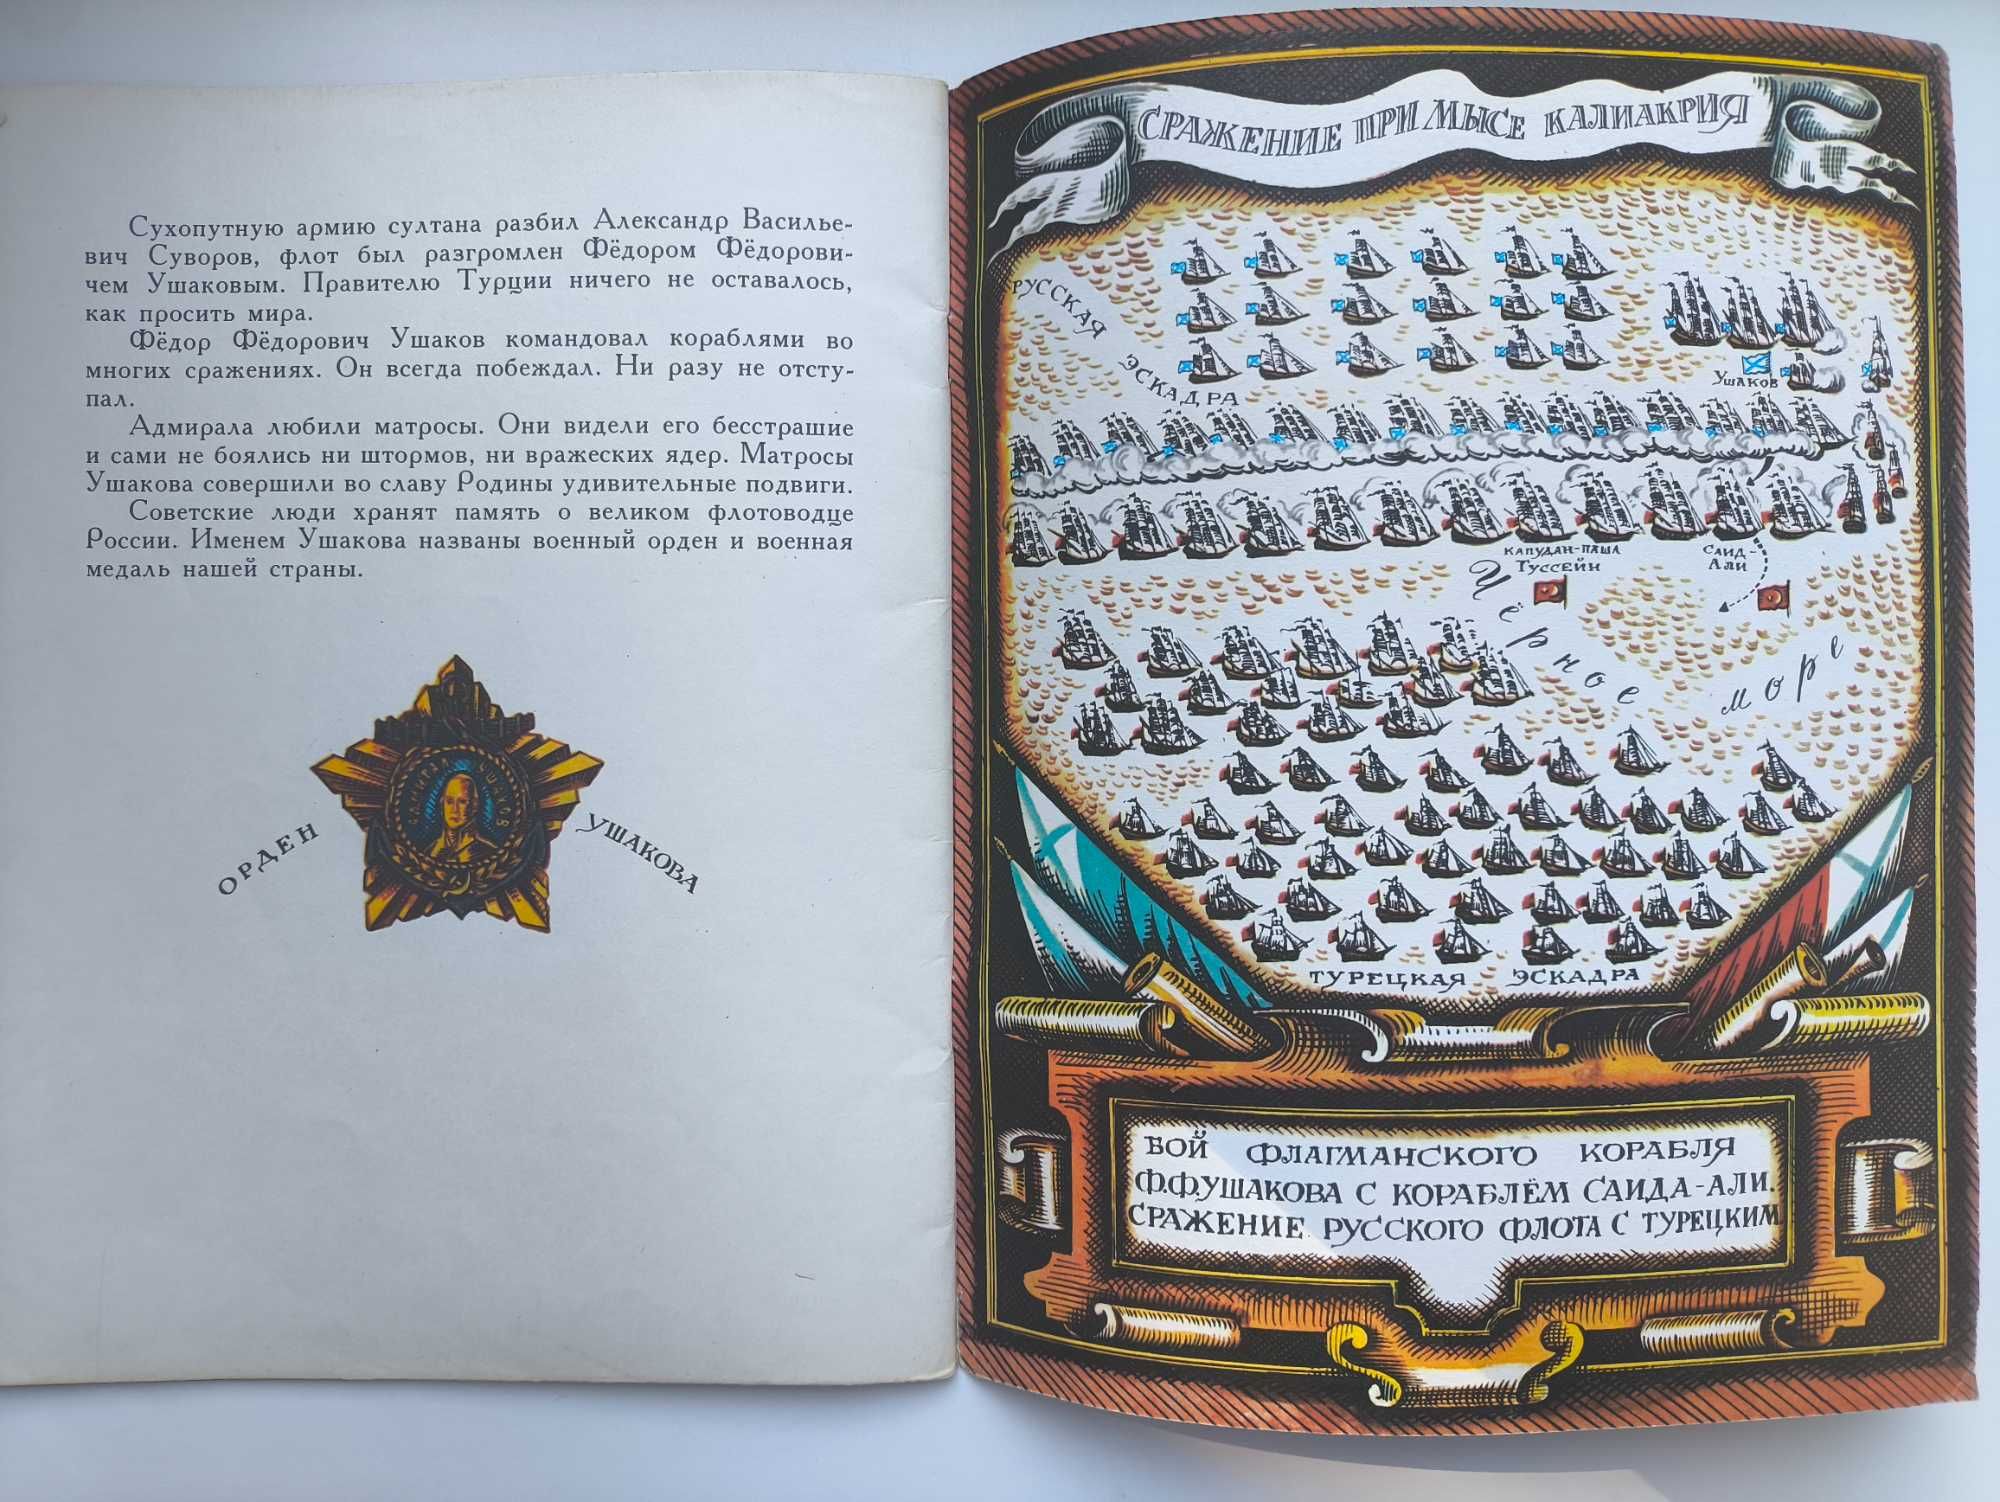 Сухопутную армию султана разбил Александр Василье-
вич Суворов, флот был разгромлен Фёдором Фёдорови-
чем Ушаковым. Правителю Турции ничего не оставалось,
как просить мира.
Фёдор Фёдорович Ушаков командовал кораблями во
многих сражениях. Он всегда побеждал. Ни разу не отсту-
пал.
Адмирала любили матросы. Они видели его бесстрашие
и сами не боялись ни штормов, ни вражеских ядер. Матросы
Ушакова совершили во славу Родины удивительные подвиги.
Советские люди хранят память о великом флотоводце
России. Именем Ушакова названы военный орден и военная
медаль нашей страны.
АДМИРАЛ УШАКОВ
ОРДЕН УШАКОВА
СРАЖЕНИЕ ПРИ МЫСЕ КАЛИАКРИЯ
РУССКАЯ ЭСКАДРА
Ушаков
КАПУДАН-ПАША
ТУССЕЙН
САИД-
АЛИ
Чёрное море
ТУРЕЦКАЯ ЭСКАДРА
БОЙ ФЛАГМАНСКОГО КОРАБЛЯ
Ф.Ф.УШАКОВА С КОРАБЛЁМ САИДА-АЛИ.
СРАЖЕНИЕ РУССКОГО ФЛОТА С ТУРЕЦКИМ